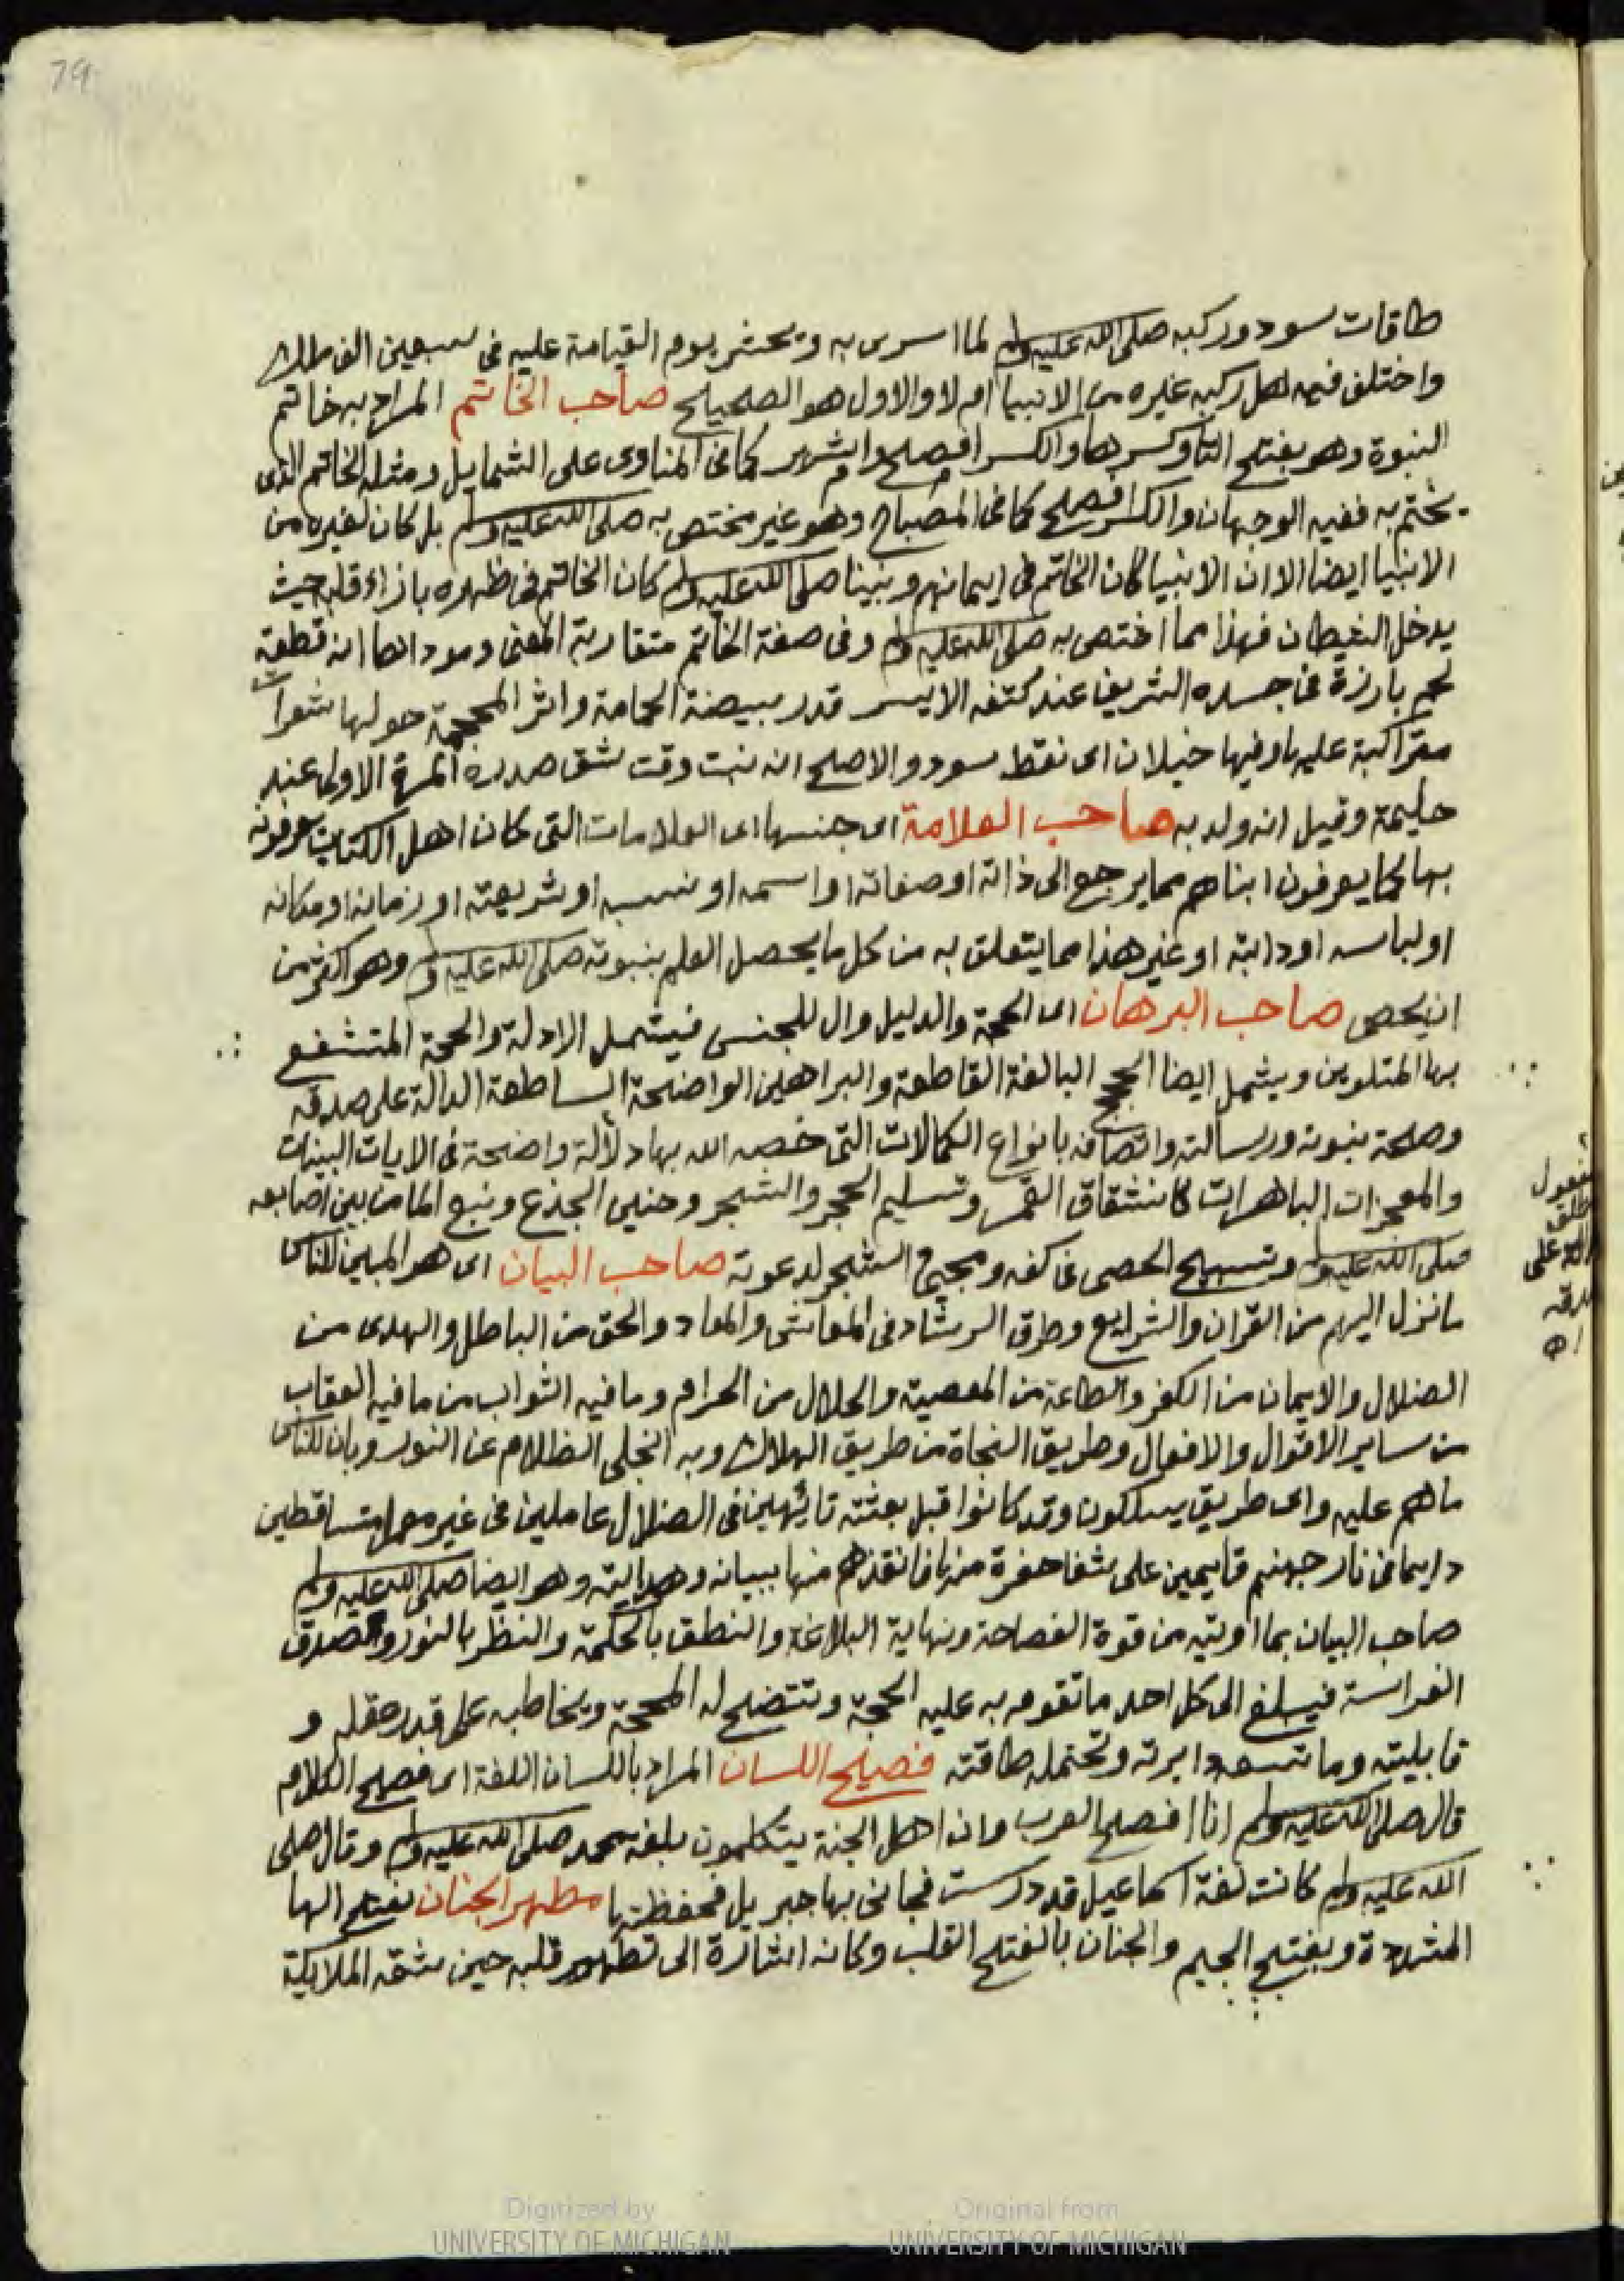 79
طاقات سود وركبه صلى الله عليه وسلم لما اسرى به ويحشر يوم القيامة عليه في سبعين الف ملك
واختلف فيه هل ركبه غيره من الانبيا ام لا والاول هو الصحيح صاحب الخاتم المراد به خاتم
النبوة وهو بفتح التا وكسرها والكسر افصح واشهر كما في المناوى على الشمايل ومثله الخاتم الذى
يختم به ففيه الوجهان والكسر افصح كما في المصباح وهو غير مختص به صلى الله عليه وسلم بل كان لغيره من
الانبيا ايضا الا ان الانبيا كان الخاتم في ايمانهم ونبينا صلى الله عليه وسلم كان الخاتم في ظهره بازاء قلبه حيث
يدخل الشيطان فهذا مما اختص به صلى الله عليه وسلم وفى صفة الخاتم متقاربة المعنى ومودا انه قطعة
لحم بارزة في جسده الشريف عند كتفه الايسر قدر بيضة الحمامة واثر المحجمة حولها شعرات
متراكبة عليها وفيها خيلان اى نقط سود والاصح انه نبت وقت شق صدره المرة الاولى عند
حليمة وقيل انه ولد به صاحب العلامة اى جنسها اى العلامات التى كان اهل الكتاب يعرفونه
بها كما يعرفون ابناهم مما يرجع الى ذاته او صفاته او اسمه او نسبه او شريعته او زمانه او مكانه
او لباسه او دابته او غير هذا مما يتعلق به من كل ما يحصل العلم بنبوته صلى الله عليه وسلم وهو اكثر من
ان يحصى صاحب البرهان اى الحجة والدليل وال للجنس فيشمل الادلة والحجة المتشفع
بها المتلوين ويشمل ايضا الحجج البالغة القاطعة والبراهين الواضحة الساطعة الدالة على صدقه
وصحة نبوته ورسالته واتصافه بانواع الكمالات التى خصه الله بها دلالة واضحة في الايات البينات
والمعجزات الباهرات كانشقاق القمر وتسليم الحجر والشجر وحنين الجذع ونبع الما من بين اصابعه
صلى الله عليه وسلم وتسبيح الحصى في كفه ومجيئ الشجر لدعوته صاحب البيان اى هو المبين للناس
ما نزل اليهم من القران والشرايع وطرق الرشاد في المعاش والمعاد والحق من الباطل والهدى من
الضلال والايمان من الكفر والطاعة من المعصية والحلال من الحرام وما فيه الثواب من ما فيه العقاب
من ساير الاقوال والافعال وطريق النجاة من طريق الهلاك وبه انجلى الظلام عن النور وبان للناس
ما هم عليه واى طريق يسلكون وقد كانوا قبل بعثته تائهين في الضلال عاملين في غير معمل متساقطين
دايما في نار جهنم قايمين على شفا حفرة منها فانقذهم منها ببيانه وهدايته وهو ايضا صلى الله عليه وسلم
صاحب البيان بما اوتيه من قوة الفصاحة ونهاية البلاغة والنطق بالحكمة والنظر بالنور والصدق
الفراسة فيبلغ الى كل احد ما تقوم به عليه الحجة وتتضح له المحجة ويخاطبه على قدر عقله و
قابليته وما تسعه دايرته وتحتمله طاقته فصيح اللسان المراد باللسان اللغة اى فصيح الكلام
قال صلى الله عليه وسلم انا افصح العرب وان اهل الجنة يتكلمون بلغة محمد صلى الله عليه وسلم وقال صلى
الله عليه وسلم كانت لغة اسماعيل قد درست فجانى بها جبريل فحفظنيها مطهر الجنان بفتح الها
المشددة وبفتح الجيم والجنان بالفتح القلب وكانه اشارة الى تطهير قلبه حين شقه الملايكة
على
Digitized by
UNIVERSITY OF MICHIGAN
Original from
UNIVERSITY OF MICHIGAN